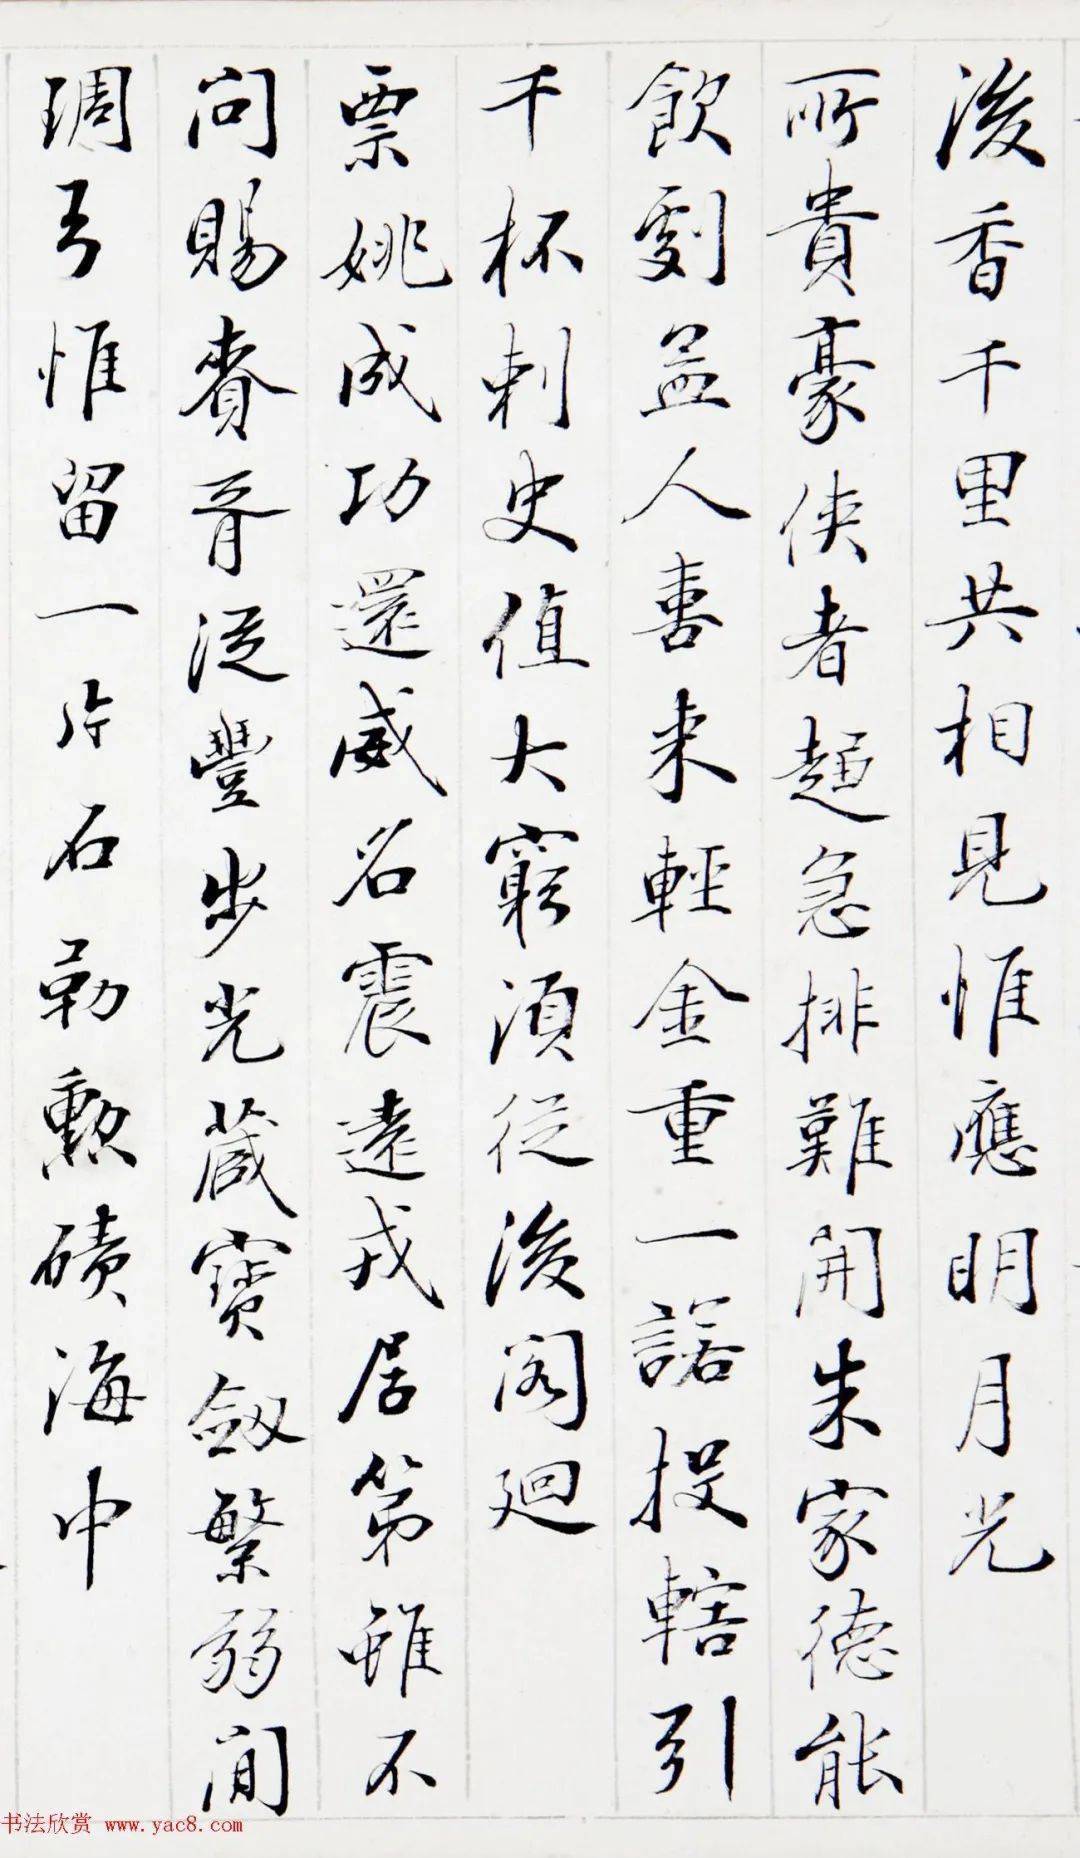 後香千里共相見惟應明月光
所貴豪俠者趨急排難開朱家德能
飲劇孟人喜來輕金重一諾投轄引
千杯刺史值大窮須從後閣迴
票姚成功還威名震遠戎居第雖不
問賜賚胥從豐步光藏寶劔繁弱閒
琱弓惟留一片石勒勳磧海中
书法欣赏 www.yac8.com